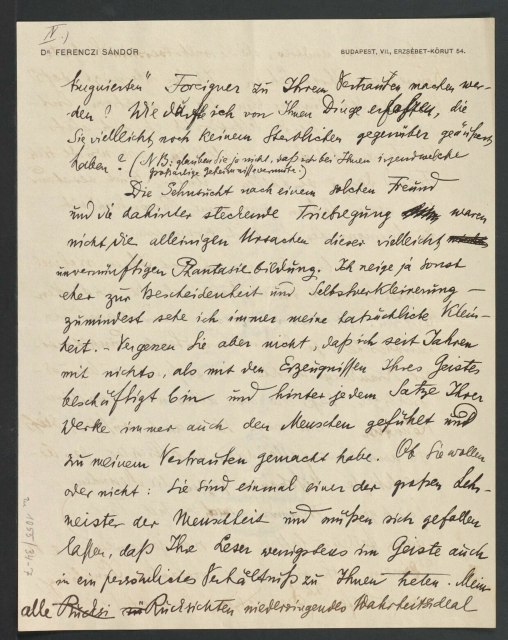 IV.)
Dr. FERENCZI SÁNDOR
BUDAPEST, VII., ERZSÉBET-KÖRUT 54.
Foreigner zu Ihrem Vertrauten machen wer-
den? Wie dürfte ich von Ihnen Dinge erfahren, die
Sie vielleicht noch keinem Sterblichen gegenüber geäußert
haben? (NB: glauben Sie ja nicht, daß ich bei Ihnen irgendwelche
großartige Geheimnisse vermute.)
Die Sehnsucht nach einem solchen Freund
und die dahinter steckende Triebregung waren
nicht die alleinigen Ursachen dieser vielleicht
unvernünftigen Phantasiebildung. Ich neige ja sonst
eher zur Bescheidenheit und Selbstverkleinerung –
zumindest sehe ich immer meine tatsächliche Klein-
heit. – Vergessen Sie aber nicht, daß ich seit Jahren
mit nichts, als mit den Erzeugnissen Ihres Geistes
beschäftigt bin und hinter jedem Satze Ihrer
Werke immer auch den Menschen gefühlt und
zu meinem Vertrauten gemacht habe. Ob Sie wollen
oder nicht: Sie sind einmal einer der großen Lehr-
meister der Menschheit und müßen sich gefallen
laßen, daß Ihre Leser wenigstens im Geiste auch
in ein persönliches Verhältniß zu Ihnen treten. Mein
alle Rücksi Rücksichten niederringendes Wahrheitsideal